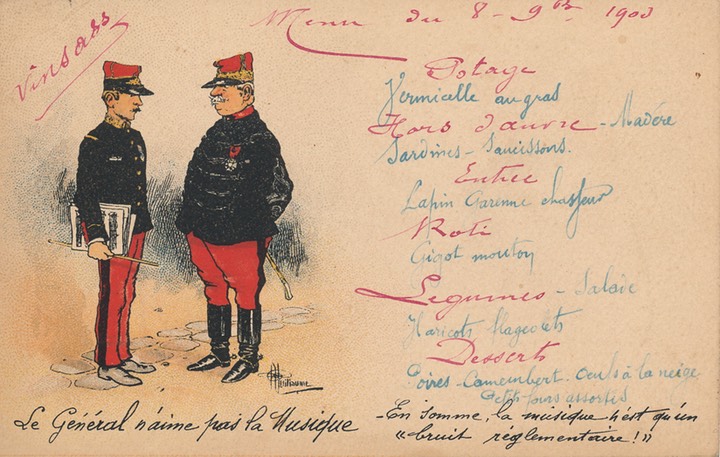 Vinsass
Menu du 8 - 9bre 1900
Potage
Vermicelle au gras
Hors d'œuvre - Madère
Sardines - Saucissons.
Entrée
Lapin Garenne chasseur
Roti
Gigot mouton
Legumes - Salade
Haricots flageolets
Desserts
Poires - Camembert - Oeufs à la neige
Petits fours assortis
A Guillaume
Le Général n'aime pas la Musique
- En somme, la musique n'est qu'un
« bruit réglementaire ! »